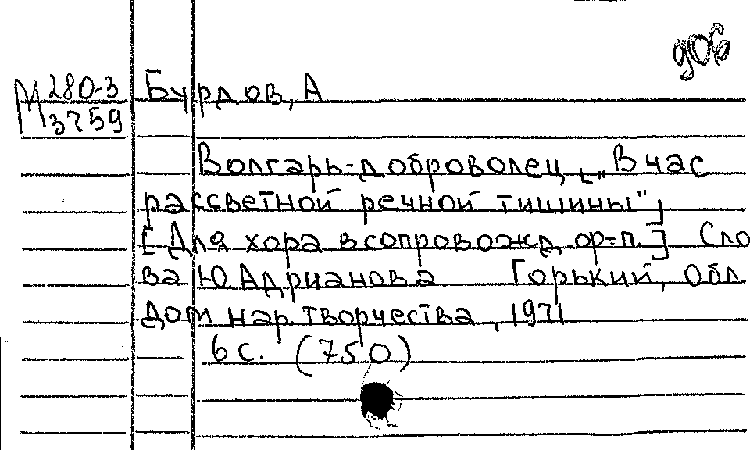 906
М 280-3 Бурдов, А
3759
Волгарь-доброволец [„В час
рассветной речной тишины"]
[Для хора в сопровожд. ор-п.] Сло
ва Ю. Адрианова Горький, Обл.
дом нар. творчества, 1971
6 с. (750)